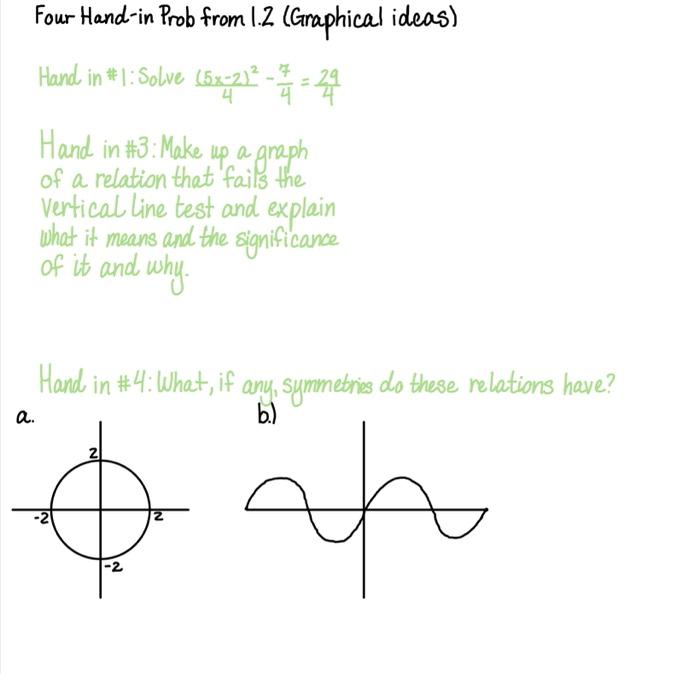 Four Hand-in Prob from 1.2 (Graphical ideas)
Hand in #1: Solve (5x-2)²/4 - 7/4 = 29/4
Hand in #3: Make up a graph
of a relation that fails the
vertical line test and explain
what it means and the significance
of it and why.
Hand in #4: What, if any, symmetries do these relations have?
a. b.)
2
-2 2
-2